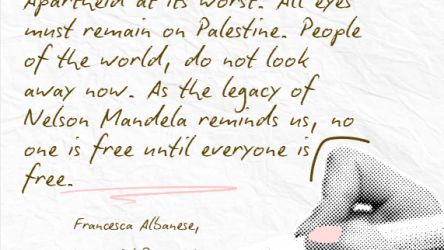 Apartheid at its worst. All eyes
must remain on Palestine. People
of the world, do not look
away now. As the legacy of
Nelson Mandela reminds us, no
one is free until everyone is
free.
Francesca Albanese,